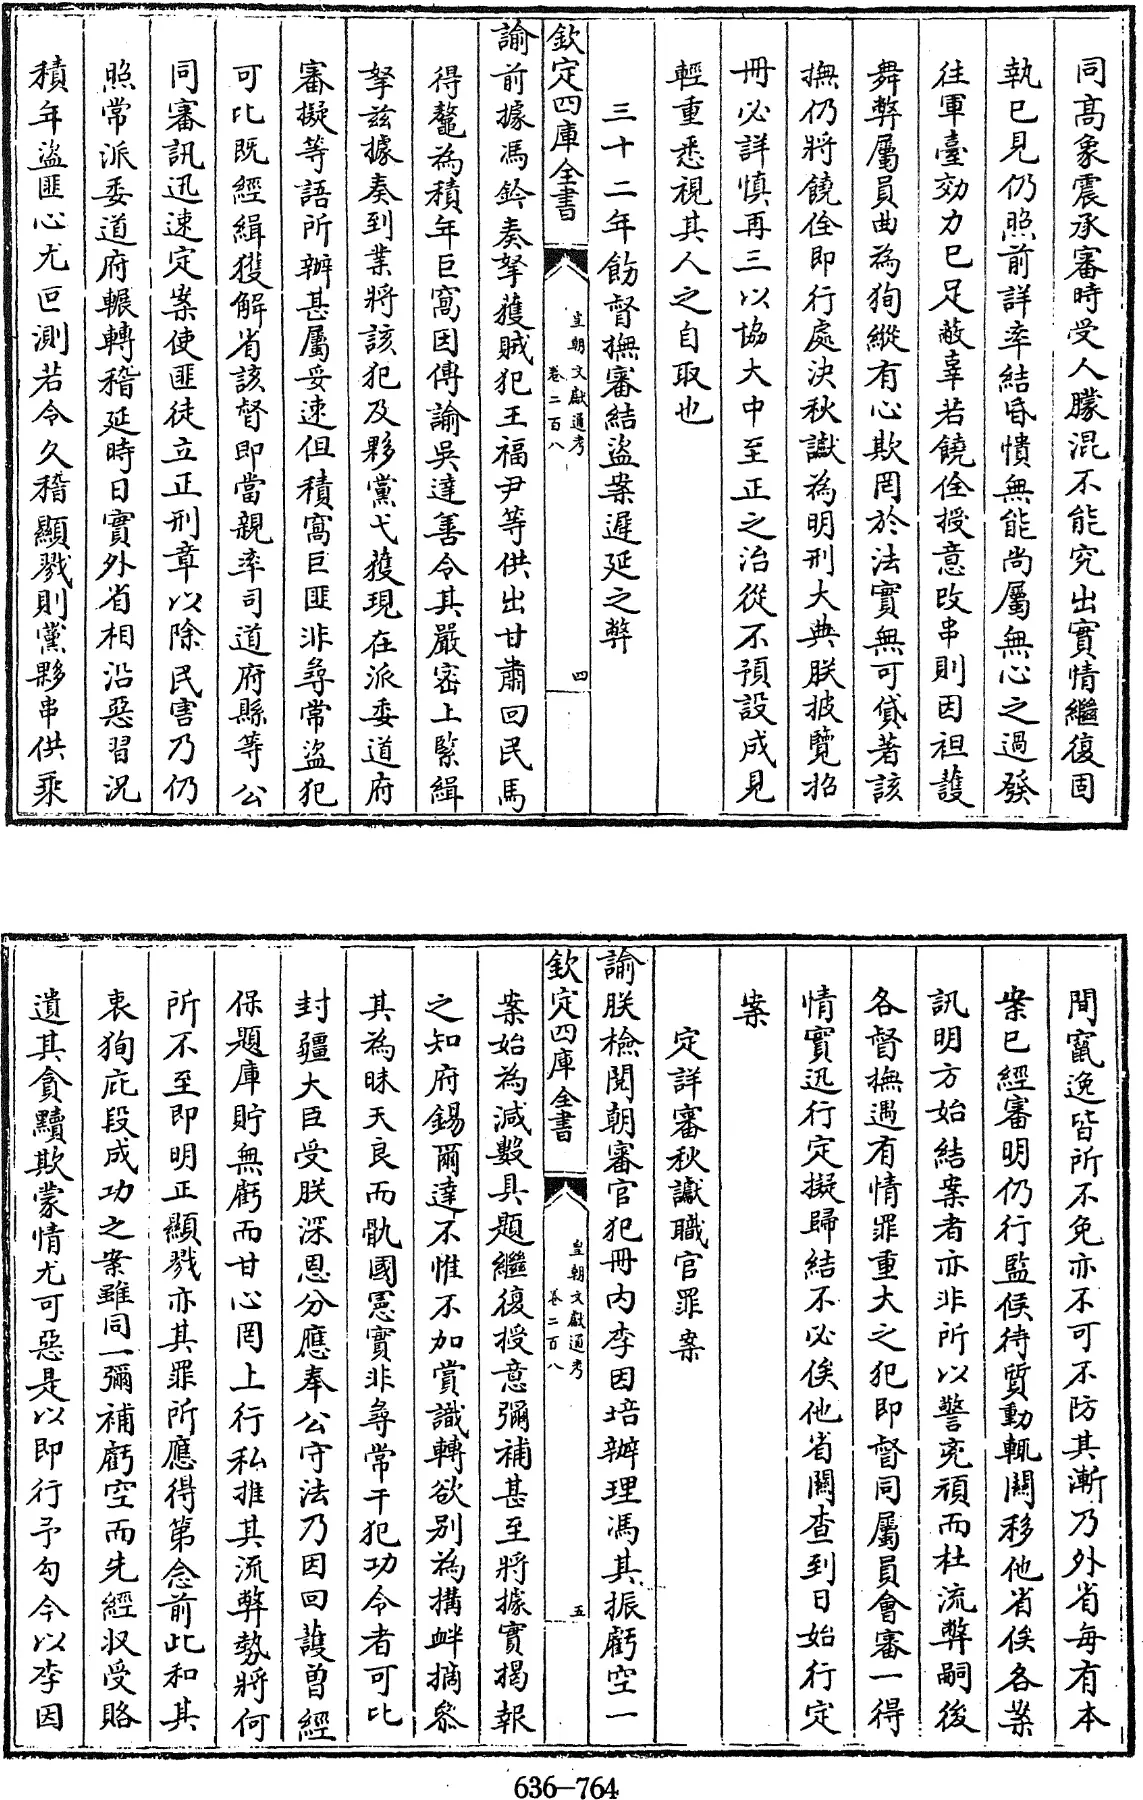 同高象震承審時受人朦混不能究出實情繼復固
執已見仍照前詳率結昏憒無能尚屬無心之過發
往軍臺効力已足蔽辜若饒佺授意改串則因袒護
舞弊屬員曲為狥縱有心欺罔於法實無可貸著該
撫仍將饒佺即行處決秋讞為明刑大典朕披覽招
冊必詳慎再三以協大中至正之治從不預設成見
輕重悉視其人之自取也
三十二年飭督撫審結盜案遲延之弊
欽定四庫全書
皇朝文獻通考
卷二百八
四
諭前據馮鈐奏拏獲賊犯王福尹等供出甘肅回民馬
得鼇為積年巨窩因傳諭吳達善令其嚴密上緊緝
拏兹據奏到業將該犯及夥黨弋獲現在派委道府
審擬等語所辦甚屬妥速但積窩巨匪非尋常盜犯
可比既經緝獲解省該督即當親率司道府縣等公
同審訊迅速定案使匪徒立正刑章以除民害乃仍
照常派委道府輾轉稽延時日實外省相沿惡習況
積年盜匪心尤叵測若令久稽顯戮則黨夥串供乘
間竄逸皆所不免亦不可不防其漸乃外省每有本
案已經審明仍行監候待質動輒關移他省俟各案
訊明方始結案者亦非所以警兇頑而杜流弊嗣後
各督撫遇有情罪重大之犯即督同屬員會審一得
情實迅行定擬歸結不必俟他省關查到日始行定
案
定詳審秋讞職官罪案
諭朕檢閱朝審官犯冊内李因培辦理馮其振虧空一
欽定四庫全書
皇朝文獻通考
卷二百八
五
案始為減數具題繼復授意彌補甚至將據實揭報
之知府錫爾達不惟不加賞識轉欲别為搆衅摘叅
其為昧天良而骩國憲實非尋常干犯功令者可比
封疆大臣受朕深恩分應奉公守法乃因回護曾經
保題庫貯無虧而甘心罔上行私推其流弊勢將何
所不至即明正顯戮亦其罪所應得第念前此和其
衷狥庇段成功之案雖同一彌補虧空而先經収受賂
遺其貪黷欺蒙情尤可惡是以即行予勾今以李因
636-764